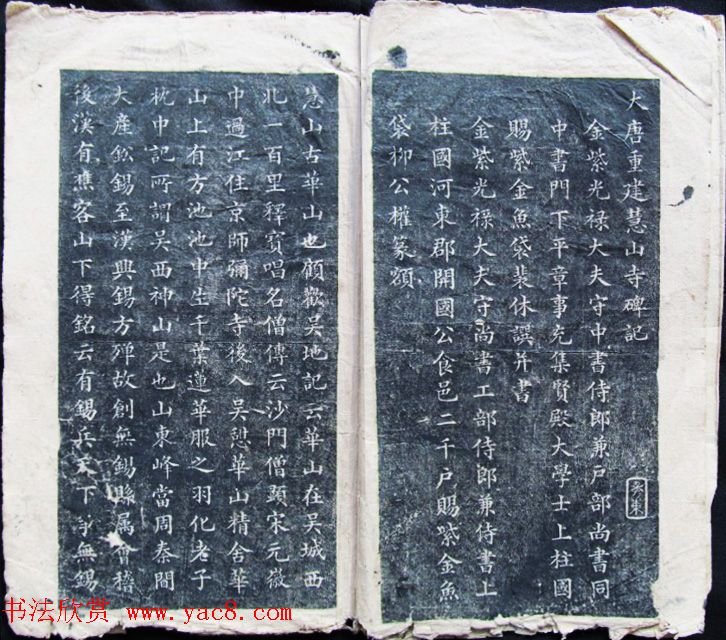 大唐重建慧山寺碑記
金紫光禄大夫守中書侍郎兼戸部尚書同
中書門下平章事充集賢殿大學士上柱國
賜紫金魚袋裴休譔并書
金紫光禄大夫守尚書工部侍郎兼侍書上
柱國河東郡開國公食邑二千户賜紫金魚
袋柳公權篆額
慧山古華山也顧歡吳地記云華山在吳城西
北一百里釋寳唱名僧傳云沙門僧顯宋元徽
中過江住京師彌陀寺後入吳憩華山精舍華
山上有方池池中生千葉蓮華服之羽化老子
枕中記所謂吳西神山是也山東峰當周秦間
大產鈆錫至漢興錫方殫故創無錫縣属會稽
後漢有樵客山下得銘云有錫兵天下爭無錫
书法欣赏 www.yac8.com